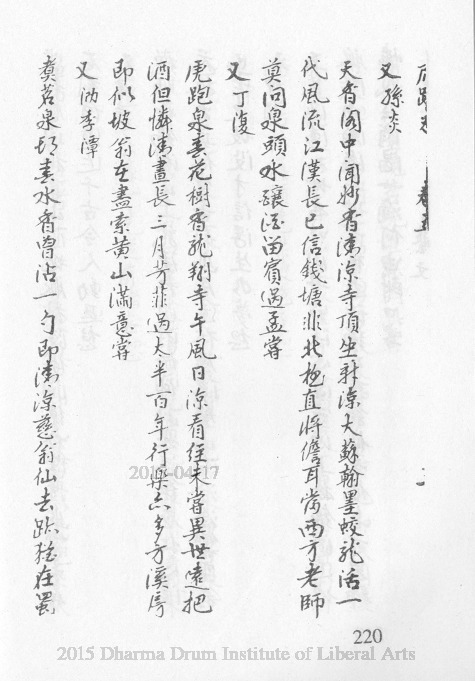 又孫炎
天香閣中聞妙香清涼寺頂坐新涼大蘇翰墨蛟龍活一
代風流江漢長已信錢塘非北極直將儋耳當西方老師
莫問泉頭水釀酒留賓過孟嘗
又丁復
虎跑泉春花樹香龍翔寺午風日涼看經未嘗異世遠把
酒但憐清晝長三月芳菲過太半百年行樂亦多方溪房
即似坡翁在盡索黃山滿意嘗
又
煑茗泉春水香曾沾一勺即清涼慈翁仙去跡猶在蜀
2015-04-17
220
2015 Dharma Drum Institute of Liberal Arts